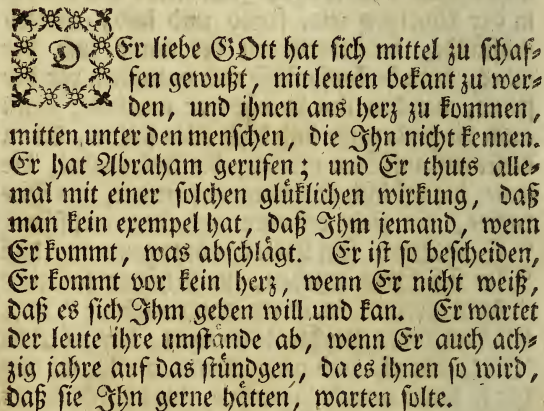 DEr liebe GOtt hat sich mittel zu schaf⸗
fen gewußt, mit leuten bekant zu wer⸗
den, und ihnen ans herz zu kommen,
mitten unter den menschen, die Ihn nicht kennen.
Er hat Abraham gerufen; und Er thuts alle⸗
mal mit einer solchen glüklichen wirkung, daß
man kein exempel hat, daß Ihm jemand, wenn
Er kommt, was abschlägt. Er ist so bescheiden,
Er kommt vor kein herz, wenn Er nicht weiß,
daß es sich Ihm geben will und kan. Er wartet
der leute ihre umstände ab, wenn Er auch ach⸗
zig jahre auf das stündgen, da es ihnen so wird,
daß sie Ihn gerne hätten, warten solte.